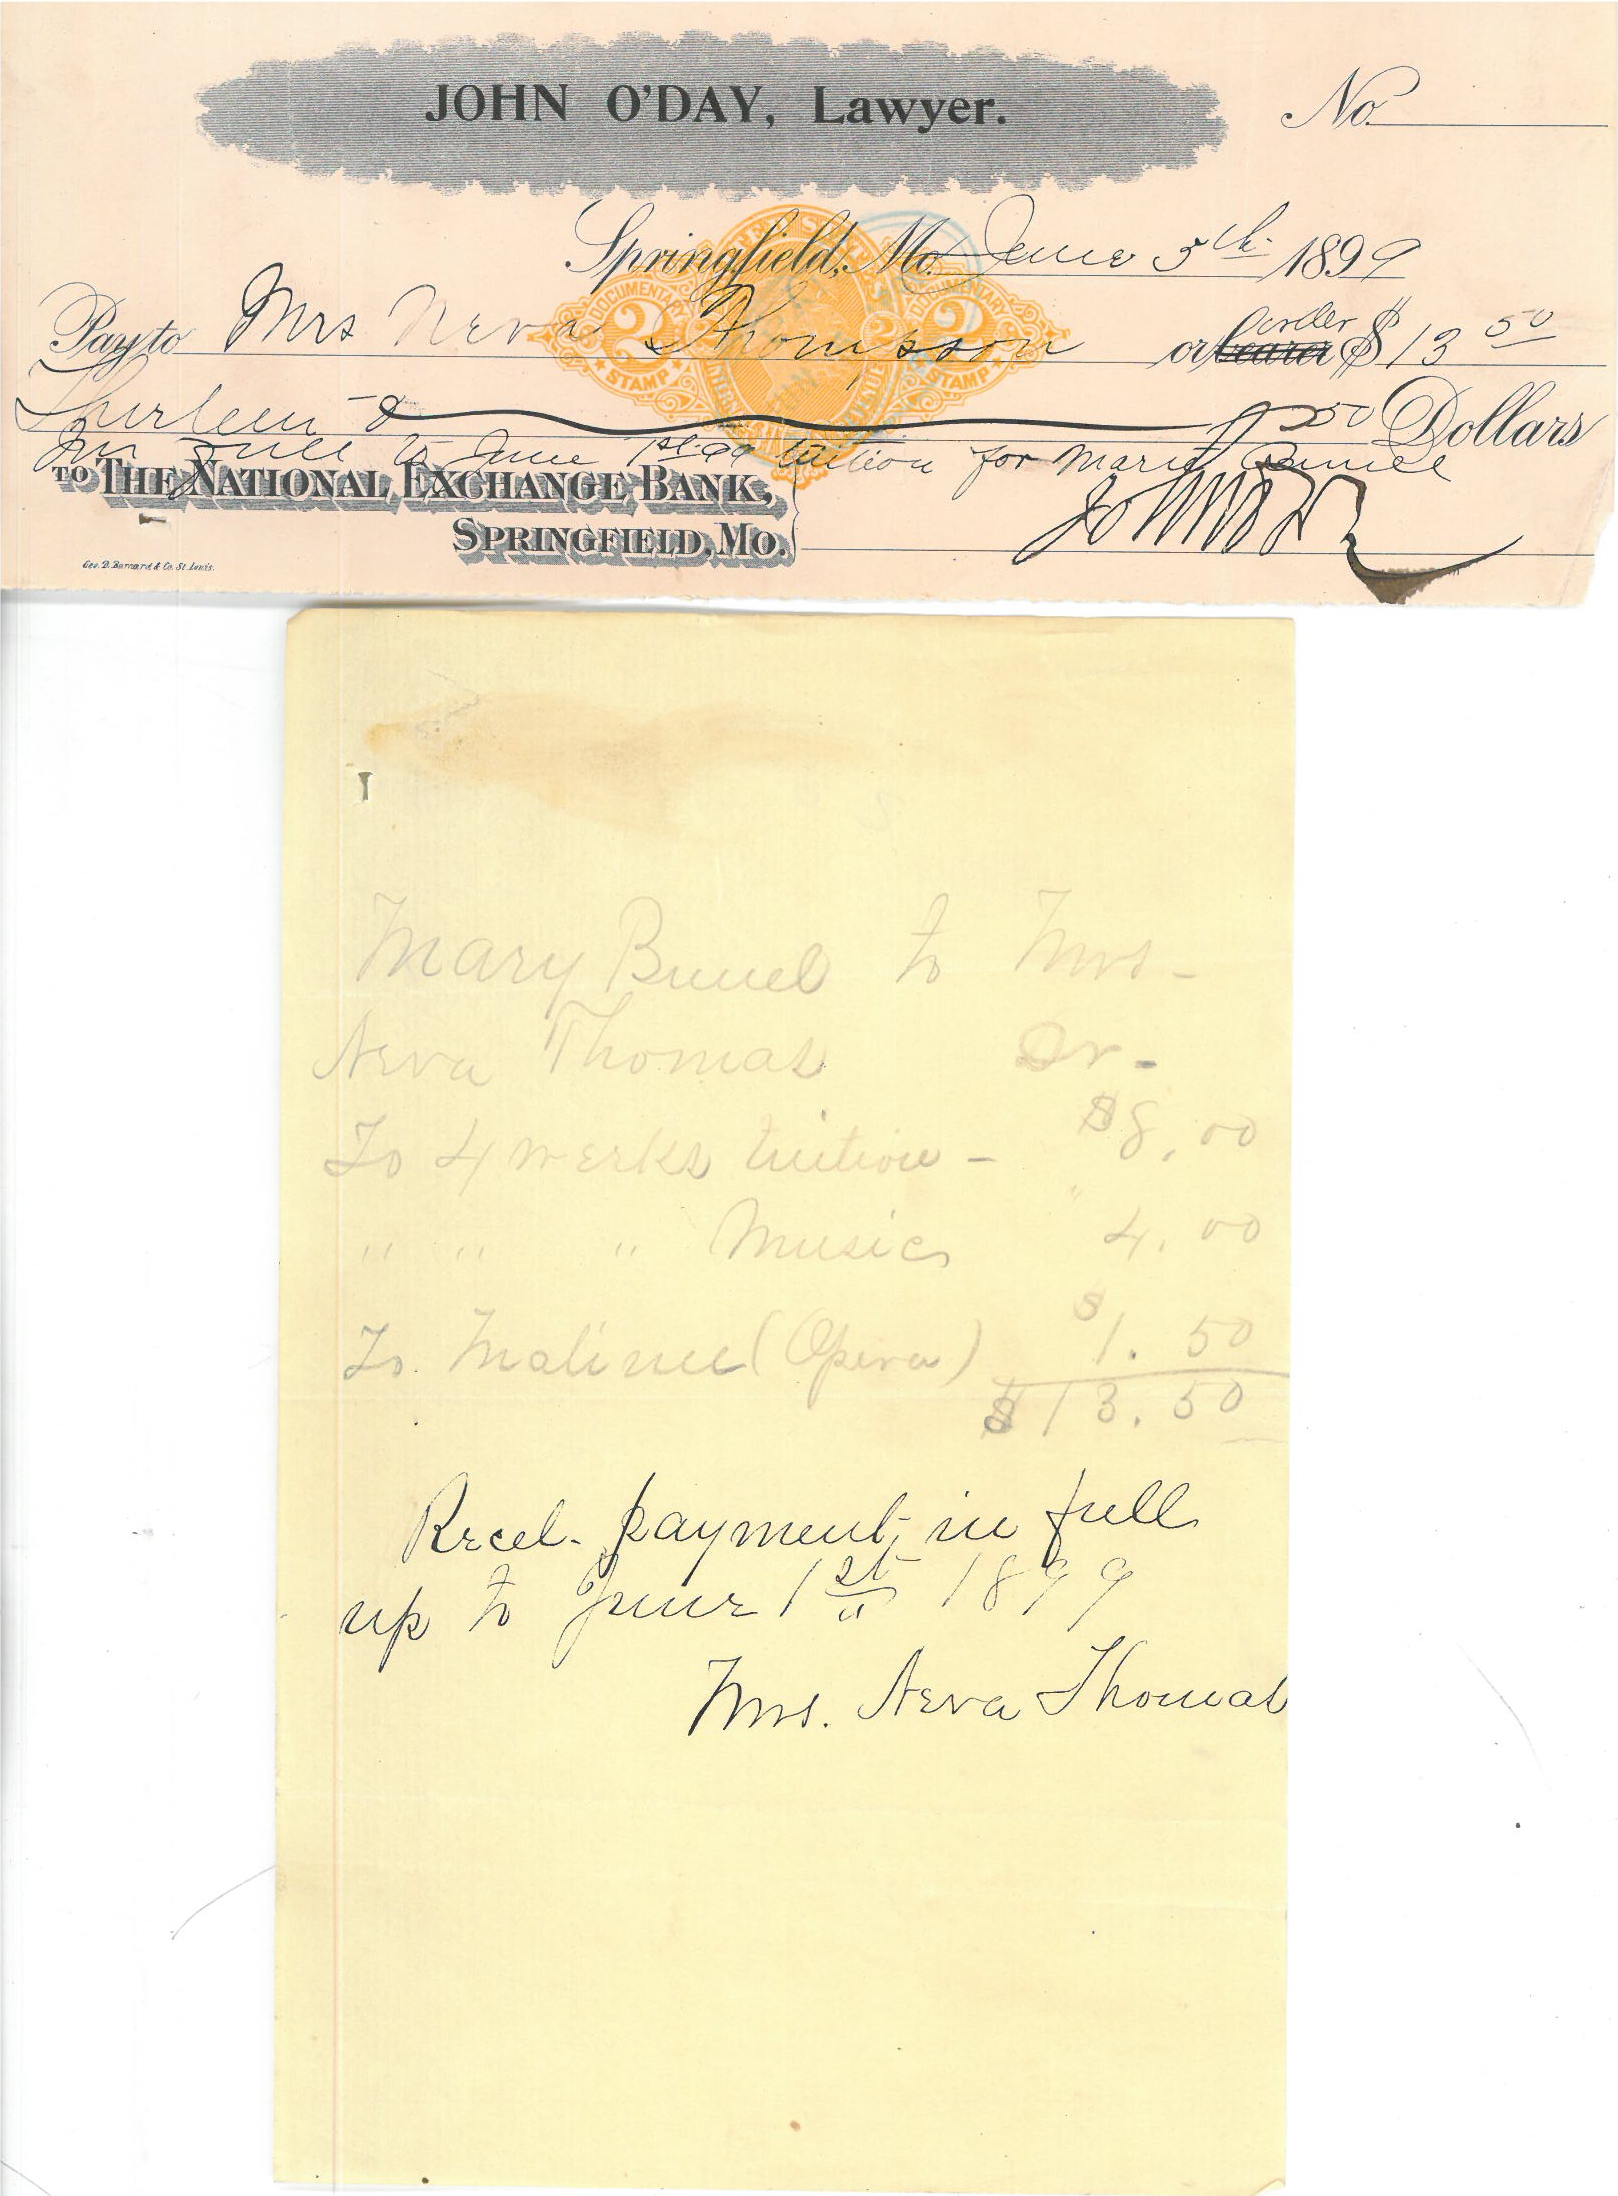 JOHN O'DAY, Lawyer.
No.
Springfield, Mo. June 5th 1899
Pay to Mrs Neva Thompson or bearer order $ 13 50
50 Dollars
In full to June 1st 99 tuition for Mary
TO THE NATIONAL EXCHANGE BANK,
SPRINGFIELD, MO.
Geo. D. Barnard & Co. St. Louis.
DOCUMENTARY 2 STAMP
DOCUMENTARY 2 STAMP
Mary Bunel to Mrs-
Neva Thomas Dr-
To 4 weeks tuition - $8.00
" " " Music " 4.00
To Matinee (Opera) $1.50
$13.50
Recd. payment in full
up to June 1st 1899
Mrs. Neva Thomas